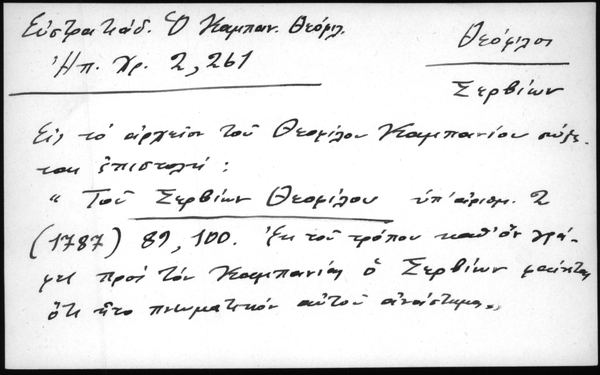 Εὐστρατιάδ. Ὁ Καμπαν. Θεόφιλ.
Ἠπ. Χρ. 2, 261
Θεόφιλος
Σερβίων
Εἰς τὸ ἀρχεῖον τοῦ Θεοφίλου Καμπανίου σώζε-
ται ἐπιστολή:
"Τοῦ Σερβίων Θεοφίλου ὑπ' ἀριθμ. 2
(1787) 89, 100. Ἐκ τοῦ τρόπου καθ' ὃν γρά-
φει πρὸς τὸν Καμπανίας ὁ Σερβίων φαίνεται
ὅτι ἦτο πνευματικὸν αὐτοῦ ἀνάστημα"